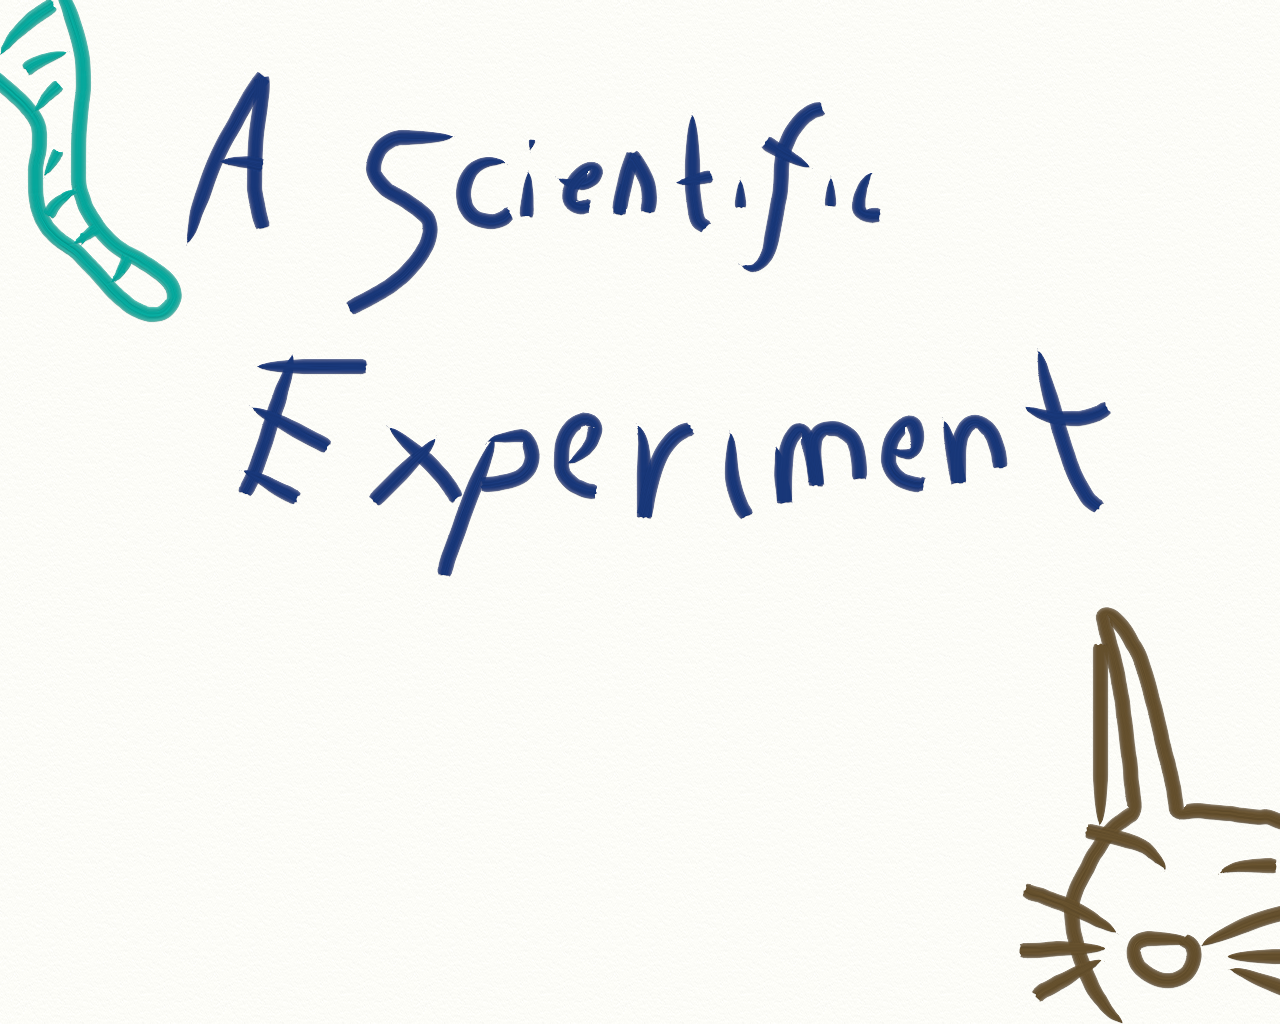 A Scientific
Experiment